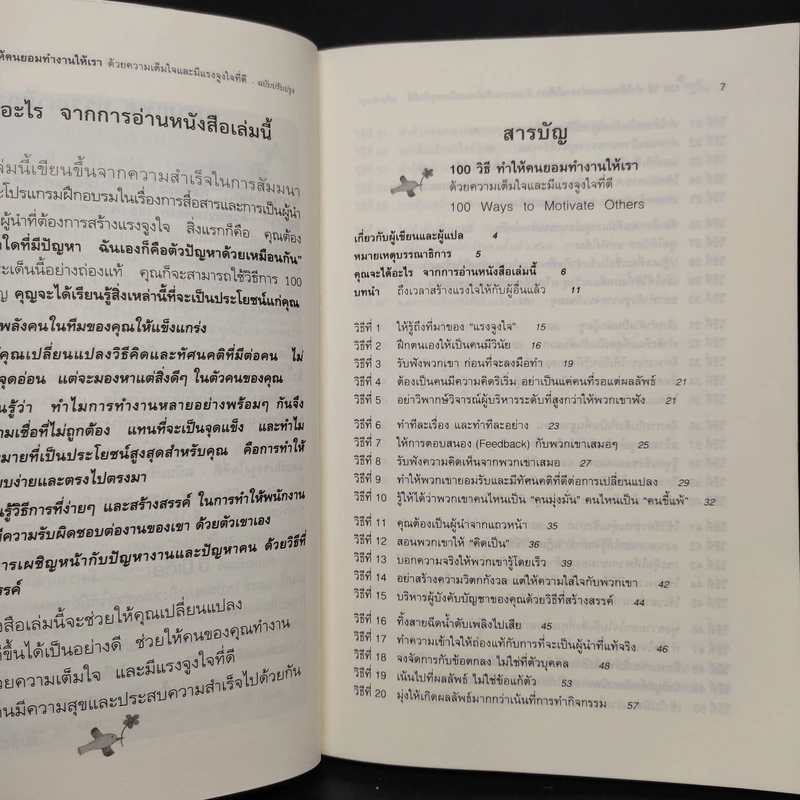 ห้คนยอมทำงานให้เรา ด้วยความเต็มใจและมีแรงจูงใจที่ดี - ฉบับปรับปรุง
อะไร จากการอ่านหนังสือเล่มนี้
ล่มนี้เขียนขึ้นจากความสำเร็จในการสัมมนา
ะโปรแกรมฝึกอบรมในเรื่องการสื่อสารและการเป็นผู้นำ
ผู้นำที่ต้องการสร้างแรงจูงใจ สิ่งแรกก็คือ คุณต้อง
ใดที่มีปัญหา ฉันเองก็คือตัวปัญหาด้วยเหมือนกัน"
ระเด็นนี้อย่างถ่องแท้ คุณก็จะสามารถใช้วิธีการ 100
คุณจะได้เรียนรู้สิ่งเหล่านี้ที่จะเป็นประโยชน์แก่คุณ
พลังคนในทีมของคุณให้แข็งแกร่ง
คุณเปลี่ยนแปลงวิธีคิดและทัศนคติที่มีต่อคน ไม่
จุดอ่อน แต่จะมองหาแต่สิ่งดีๆ ในตัวคนของคุณ
นรู้ว่า ทำไมการทำงานหลายอย่างพร้อมๆ กันจึง
ามเชื่อที่ไม่ถูกต้อง แทนที่จะเป็นจุดแข็ง และทำไม
หมายที่เป็นประโยชน์สูงสุดสำหรับคุณ คือการทำให้
บบง่ายและตรงไปตรงมา
นรู้วิธีการที่ง่ายๆ และสร้างสรรค์ ในการทำให้พนักงาน
มีความรับผิดชอบต่องานของเขา ด้วยตัวเขาเอง
การเผชิญหน้ากับปัญหางานและปัญหาคน ด้วยวิธีที่
รรค์
งสือเล่มนี้จะช่วยให้คุณเปลี่ยนแปลง
ดีขึ้นได้เป็นอย่างดี ช่วยให้คนของคุณทำงาน
วยความเต็มใจ และมีแรงจูงใจที่ดี
านมีความสุขและประสบความสำเร็จไปด้วยกัน
7
สารบัญ
100 วิธี ทำให้คนยอมทำงานให้เรา
ด้วยความเต็มใจและมีแรงจูงใจที่ดี
100 Ways to Motivate Others
เกี่ยวกับผู้เขียนและผู้แปล 4
หมายเหตุบรรณาธิการ 5
คุณจะได้อะไร จากการอ่านหนังสือเล่มนี้ 6
บทนำ ถึงเวลาสร้างแรงใจให้กับผู้อื่นแล้ว 11
วิธีที่ 1 ให้รู้ถึงที่มาของ "แรงจูงใจ" 15
วิธีที่ 2 ฝึกตนเองให้เป็นคนมีวินัย 16
วิธีที่ 3 รับฟังพวกเขา ก่อนที่จะลงมือทำ 19
วิธีที่ 4 ต้องเป็นคนมีความคิดริเริ่ม อย่าเป็นแค่คนที่รอแต่ผลลัพธ์ 21
วิธีที่ 5 อย่าวิพากษ์วิจารณ์ผู้บริหารระดับที่สูงกว่าให้พวกเขาฟัง 21
วิธีที่ 6 ทำทีละเรื่อง และทำทีละอย่าง 23
วิธีที่ 7 ให้การตอบสนอง (Feedback) กับพวกเขาเสมอๆ 25
วิธีที่ 8 รับฟังความคิดเห็นจากพวกเขาเสมอ 27
วิธีที่ 9 ทำให้พวกเขายอมรับและมีทัศนคติที่ดีต่อการเปลี่ยนแปลง 29
วิธีที่ 10 รู้ให้ได้ว่าพวกเขาคนไหนเป็น "คนมุ่งมั่น" คนไหนเป็น "คนขี้แพ้" 32
วิธีที่ 11 คุณต้องเป็นผู้นำจากแถวหน้า 35
วิธีที่ 12 สอนพวกเขาให้ "คิดเป็น" 36
วิธีที่ 13 บอกความจริงให้พวกเขารู้โดยเร็ว 39
วิธีที่ 14 อย่าสร้างความวิตกกังวล แต่ให้ความใส่ใจกับพวกเขา 42
วิธีที่ 15 บริหารผู้บังคับบัญชาของคุณด้วยวิธีที่สร้างสรรค์ 44
วิธีที่ 16 ทิ้งสายฉีดน้ำดับเพลิงไปเสีย 45
วิธีที่ 17 ทำความเข้าใจให้ถ่องแท้กับการที่จะเป็นผู้นำที่แท้จริง 46
วิธีที่ 18 จงจัดการกับข้อตกลง ไม่ใช่ที่ตัวบุคคล 48
วิธีที่ 19 เน้นไปที่ผลลัพธ์ ไม่ใช่ข้อแก้ตัว 53
วิธีที่ 20 มุ่งให้เกิดผลลัพธ์มากกว่าเน้นที่การทำกิจกรรม 57